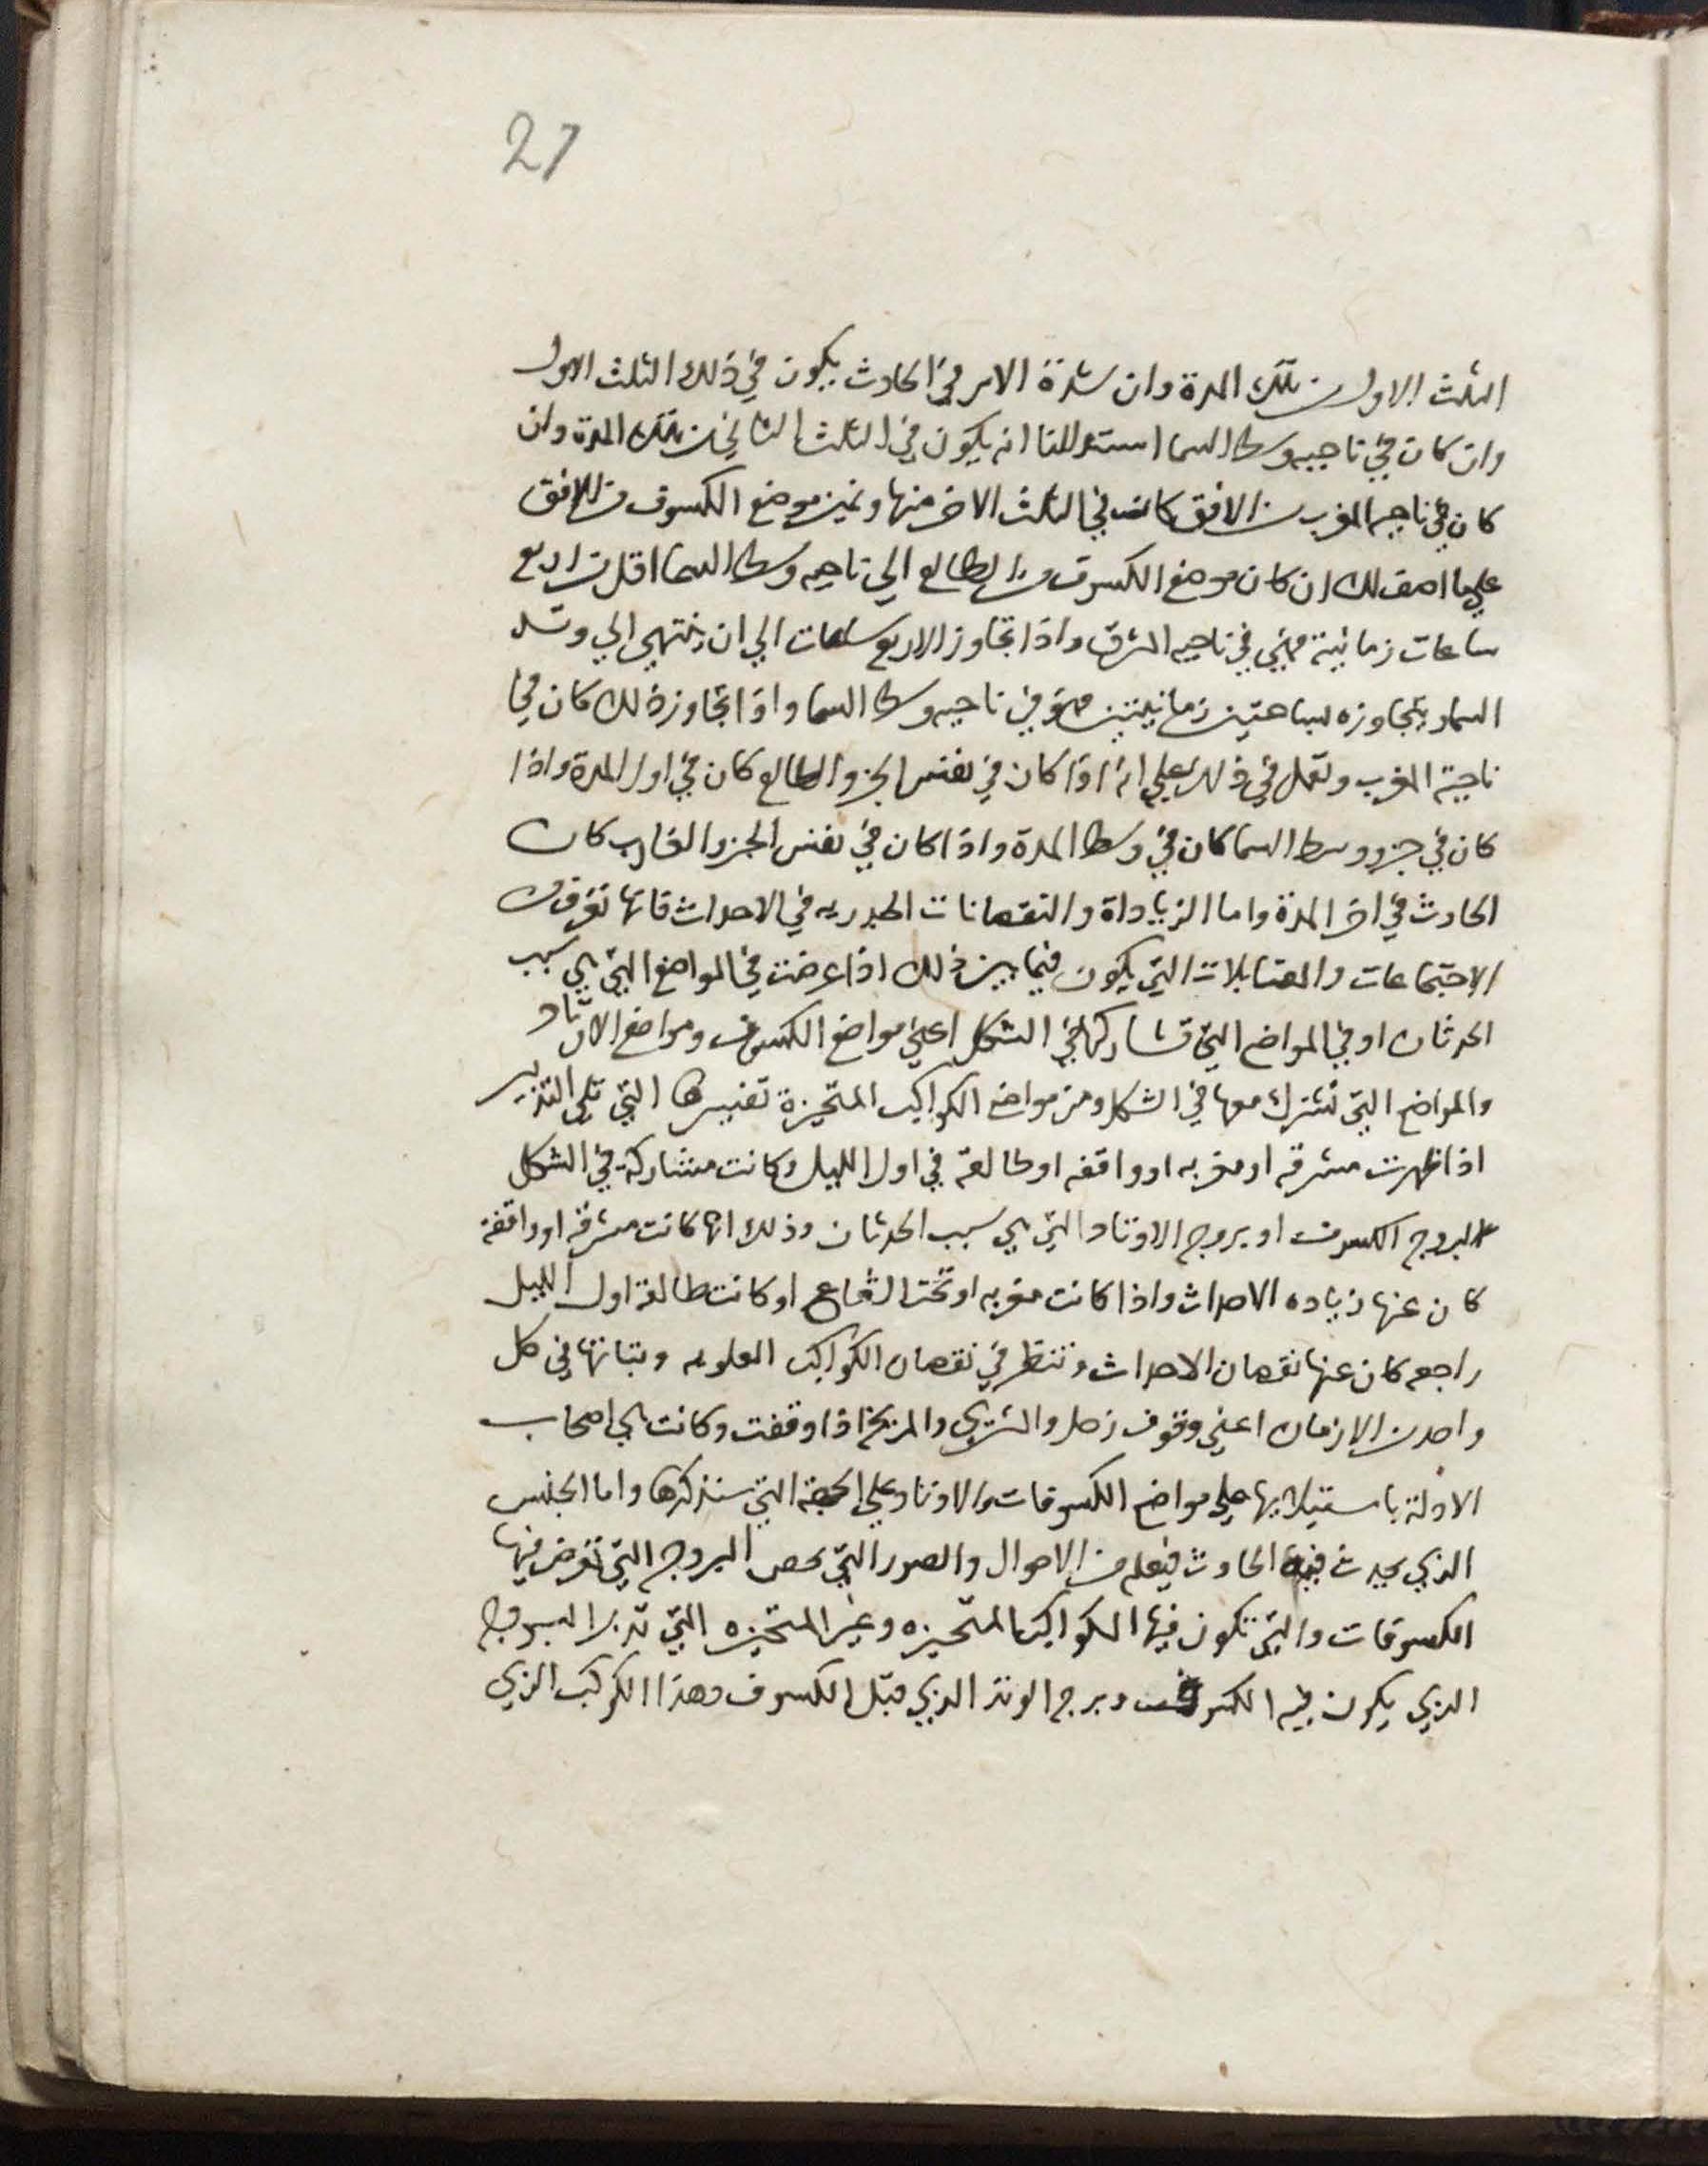 27
الثلث الاول من تلك المدة وان شدة الامر في الحادث يكون في ذلك الثلث الاول
وان كان في ناحيه وسط السما استدللنا انه يكون في الثلث الثاني من تلك المدة وان
كان في ناحيه المغرب من الافق كان في الثلث الاخر منها وتميز موضع الكسوف من الافق
علي ما اصف لك ان كان موضع الكسوف من الطالع الي ناحيه وسط السما اقل من اربع
ساعات زمانية فهي في ناحيه المشرق واذا تجاوز الاربع ساعات الي ان ينتهي الي وتد
السما ويتجاوزه بساعتين زمانيتين فهو في ناحيه وسط السما واذا تجاوز ذلك كان في
ناحية المغرب وتعمل في ذلك علي انه اذا كان في نفس الجزو الطالع كان في اول المدة واذا
كان في جزو وسط السما كان في وسط المدة واذا كان في نفس الجزو الغارب كان
الحادث في اخر المدة واما الزياداة والنقصانات في الاحداث فانها تعرف من
الاجتماعات والمقابلات التي يكون فيما بين ذلك اذا عرضت في المواضع التي هي سبب
الحدثان او في المواضع التي تشاركها في الشكل اعني مواضع الكسوف ومواضع الاوتاد
والمواضع التي تشترك معها في الشكل ومن مواضع الكواكب المتحيزة تغييرها التي تلي التدبير
اذا ظهرت مشرقه او مغربه او واقفه او طالعة في اول الليل وكانت مشاركة في الشكل
لبروج الكسوف او بروج الاوتاد التي هي سبب الحدثان وذلك انها كانت مشرقة او واقفة
كان عنها زياده الاحداث واذا كانت مغربه او تحت الشعاع او كانت طالعة اول الليل
راجعه كان عنها نقصان الاحداث وننظر في نقصان الكواكب العلويه وبثباتها في كل
واحد من الازمان اعني وقوف زحل والمشتري والمريخ اذا وقفت وكانت هي اصحاب
الادلة باستيلايها علي مواضع الكسوفات والاوتاد علي الجهة التي سنذكرها واما الجنس
الذي يحدث فيه الحادث فيعلم من الاحوال والصور التي تخص البروج التي تعرض فيها
الكسوفات والتي تكون فيها الكواكب المتحيزه وغير المتحيزه التي تدبر البروج
الذي يكون فيه الكسوف وبرج الوتد الذي قبل الكسوف وهذا الكوكب الذي